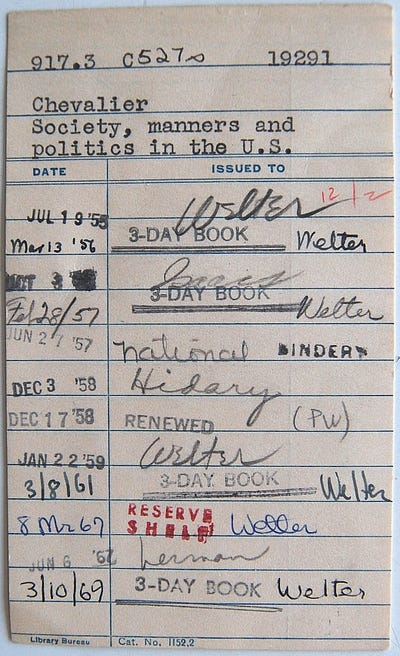 917.3 C527s 19291
Chevalier
Society, manners and
politics in the U.S.
DATE ISSUED TO
JUL 19 '55 Welter 12/2
Mar 13 '56 3-DAY BOOK Welter
3
Feb 28/57 3-DAY BOOK Welter
JUN 27 '57 national BINDERY
DEC 3 '58 Hidary
DEC 17 '58 RENEWED (PW)
JAN 22 '59 Welter
3/8/61 3-DAY BOOK Welter
8 Mr 67 RESERVE SHELF Welter
JUN 6 Lerman
3/10/69 3-DAY BOOK Welter
Library Bureau Cat. No. 1152.2